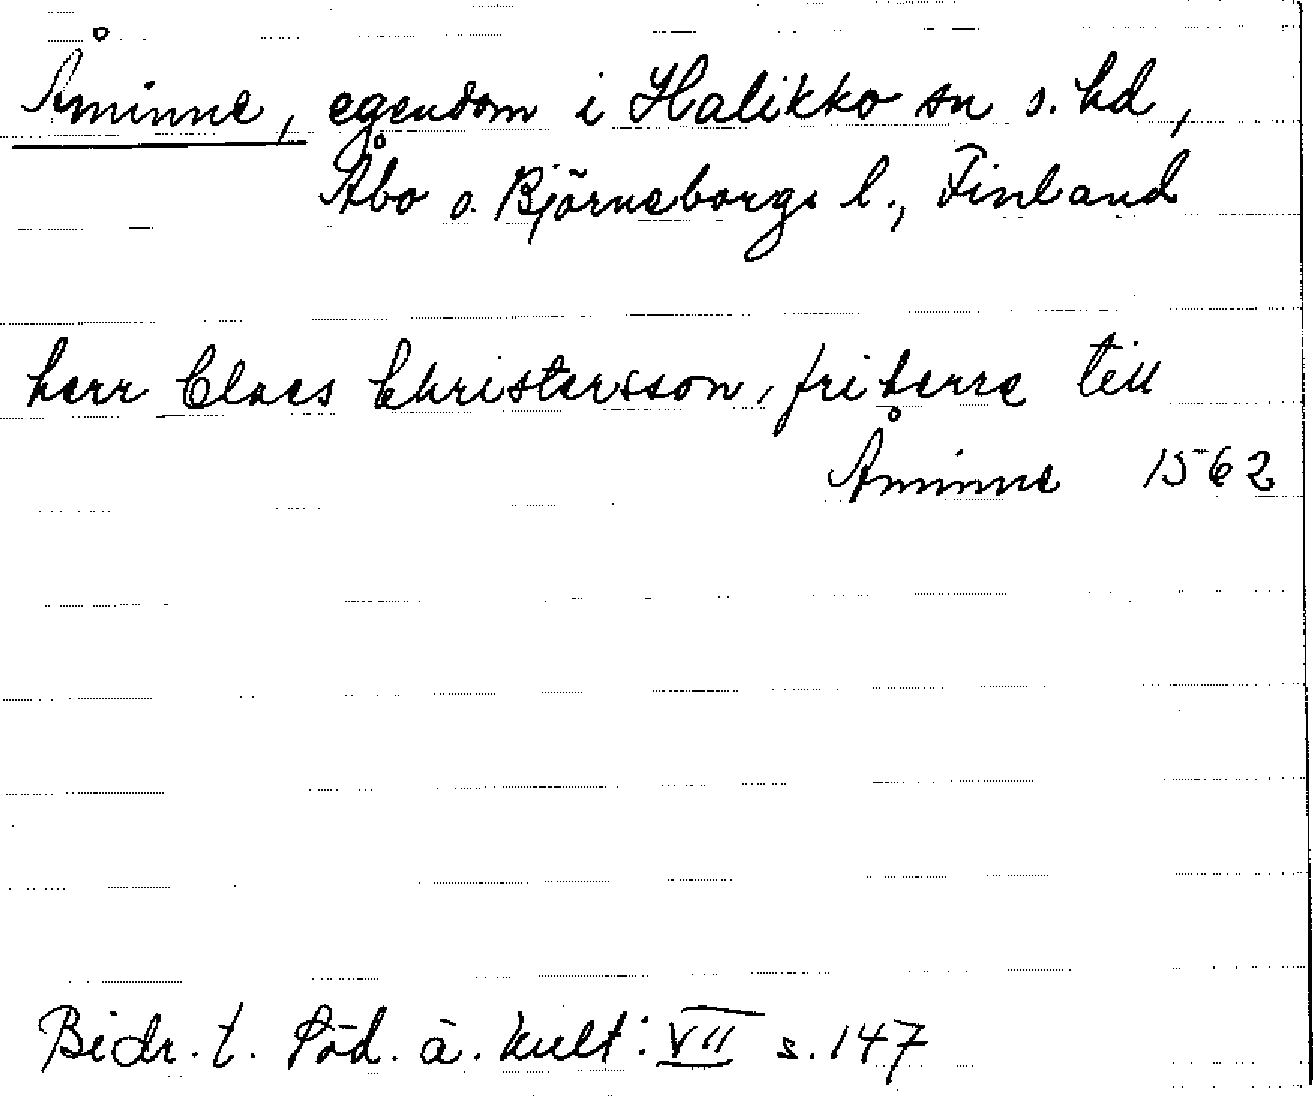 Åminne, egendom i Halikko sn s. hd,
Åbo o. Björneborgs l., Finland
herr Claes Christersson, friherre till
Åminne 1562
Bidr. t. Söd. ä. kult: VII s. 147